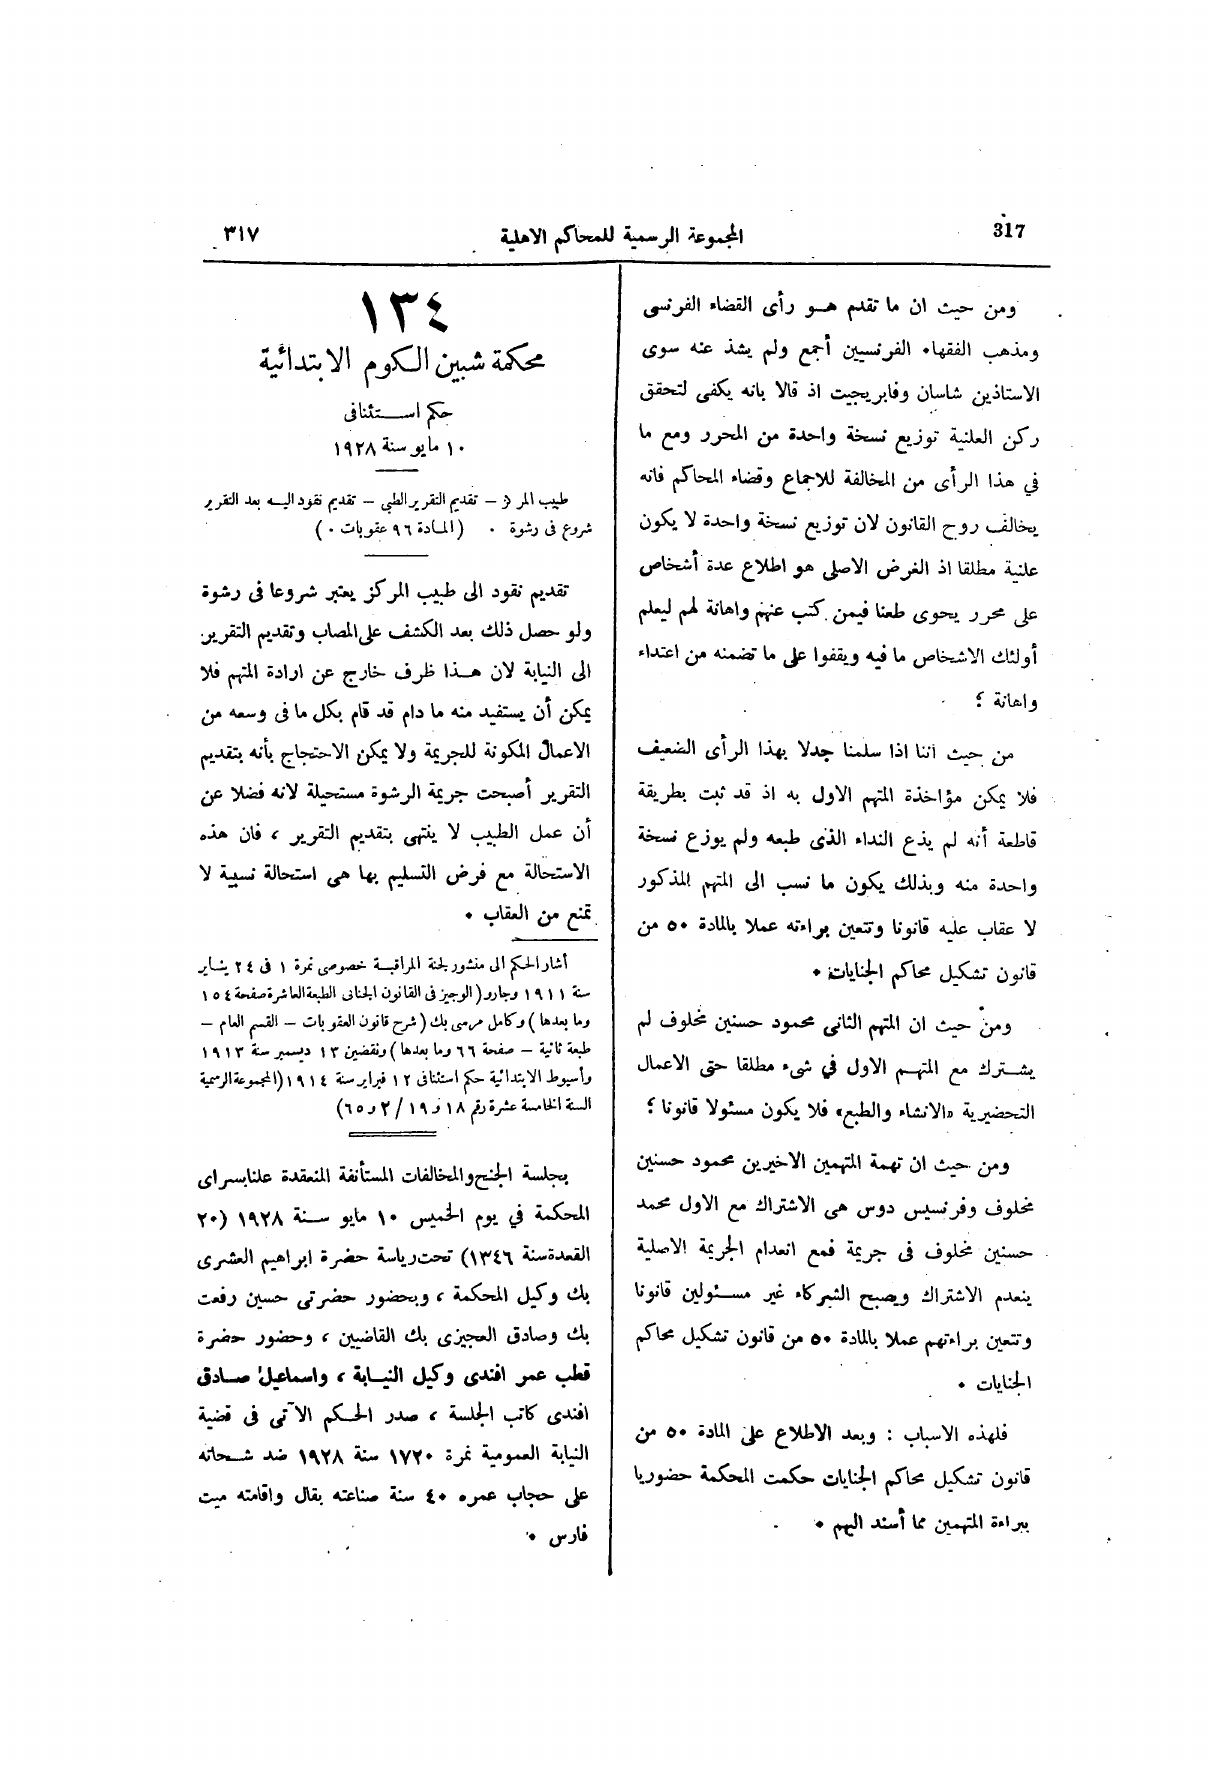 317
المجموعة الرسمية للمحاكم الاهلية
٣١٧
ومن حيث ان ما تقدم هـو رأى القضاء الفرنسى
ومذهب الفقهاء الفرنسيين أجمع ولم يشذ عنه سوى
الاستاذين شاسان وفابريجيت اذ قالا بانه يكفى لتحقق
ركن العلنية توزيع نسخة واحدة من المحرر ومع ما
في هذا الرأى من المخالفة للاجماع وقضاء المحاكم فانه
يخالف روح القانون لان توزيع نسخة واحدة لا يكون
علنية مطلقا اذ الغرض الاصلى هو اطلاع عدة أشخاص
على محرر يحوى طعنا فيمن كتب عنهم واهانة لهم ليعلم
أولئك الاشخاص ما فيه ويقفوا على ما تضمنه من اعتداء
واهانة ؛
من حيث اننا اذا سلمنا جدلا بهذا الرأى الضعيف
فلا يمكن مؤاخذة المتهم الاول به اذ قد ثبت بطريقة
قاطعة أنه لم يذع النداء الذى طبعه ولم يوزع نسخة
واحدة منه وبذلك يكون ما نسب الى المتهم المذكور
لا عقاب عليه قانونا وتتعين براءته عملا بالمادة ٥٠ من
قانون تشكيل محاكم الجنايات .
ومن حيث ان المتهم الثانى محمود حسنين مخلوف لم
يشترك مع المتهم الاول في شىء مطلقا حتى الاعمال
التحضيرية «الانشاء والطبع» فلا يكون مسئولا قانونا ؛
ومن حيث ان تهمة المتهمين الاخيرين محمود حسنين
مخلوف وفرنسيس دوس هى الاشتراك مع الاول محمد
حسنين مخلوف فى جريمة فمع انعدام الجريمة الاصلية
ينعدم الاشتراك ويصبح الشركاء غير مسئولين قانونا
وتتعين براءتهم عملا بالمادة ٥٠ من قانون تشكيل محاكم
الجنايات .
فلهذه الاسباب : وبعد الاطلاع على المادة ٥٠ من
قانون تشكيل محاكم الجنايات حكمت المحكمة حضوريا
ببراءة المتهمين مما أسند اليهم .
١٣٤
محكمة شبين الكوم الابتدائية
حكم استئنافى
١٠ مايو سنة ١٩٢٨
طبيب المركز – تقديم التقرير الطبى – تقديم نقود اليه بعد التقرير
شروع فى رشوة . (المادة ٩٦ عقوبات .)
تقديم نقود الى طبيب المركز يعتبر شروعا فى رشوة
ولو حصل ذلك بعد الكشف على المصاب وتقديم التقرير
الى النيابة لان هـذا ظرف خارج عن ارادة المتهم فلا
يمكن أن يستفيد منه ما دام قد قام بكل ما فى وسعه من
الاعمال المكونة للجريمة ولا يمكن الاحتجاج بأنه بتقديم
التقرير أصبحت جريمة الرشوة مستحيلة لانه فضلا عن
أن عمل الطبيب لا ينتهى بتقديم التقرير ، فان هذه
الاستحالة مع فرض التسليم بها هى استحالة نسبية لا
تمنع من العقاب .
أشار الحكم الى منشور لجنة المراقبة خصوصى نمرة ١ فى ٢٤ يناير
سنة ١٩١١ وجارو (الوجيز فى القانون الجنائى الطبعة العاشرة صفحة ١٥٤
وما بعدها) وكامل مرسى بك (شرح قانون العقوبات – القسم العام –
طبعة ثانية – صفحة ٦٦ وما بعدها) ونقضين ١٣ ديسمبر سنة ١٩١٣
وأسيوط الابتدائية حكم استئنافى ١٢ فبراير سنة ١٩١٤ (المجموعة الرسمية
السنة الخامسة عشرة رقم ١٨ و١٩ / ٢ و٦٥)
بجلسة الجنح والمخالفات المستأنفة المنعقدة علنا بسراى
المحكمة في يوم الخميس ١٠ مايو سنة ١٩٢٨ (٢٠
القعدة سنة ١٣٤٦) تحت رياسة حضرة ابراهيم العشرى
بك وكيل المحكمة ، وبحضور حضرتى حسين رفعت
بك وصادق العجيزى بك القاضيين ، وحضور حضرة
قطب عمر افندى وكيل النيابة ، واسماعيل صادق
افندى كاتب الجلسة ، صدر الحكم الآتى فى قضية
النيابة العمومية نمرة ١٧٢٠ سنة ١٩٢٨ ضد شحاته
على حجاب عمره ٤٠ سنة صناعته بقال واقامته ميت
فارس .